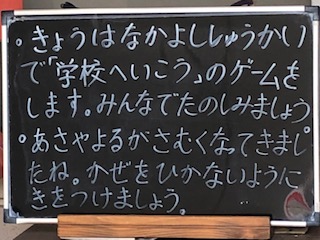 。きょうはなかよししゅうかい
で「学校へいこう」のゲームを
します。みんなでたのしみましょう
。あさやよるがさむくなってきまし
たね。かぜをひかないように
きをつけましょう。